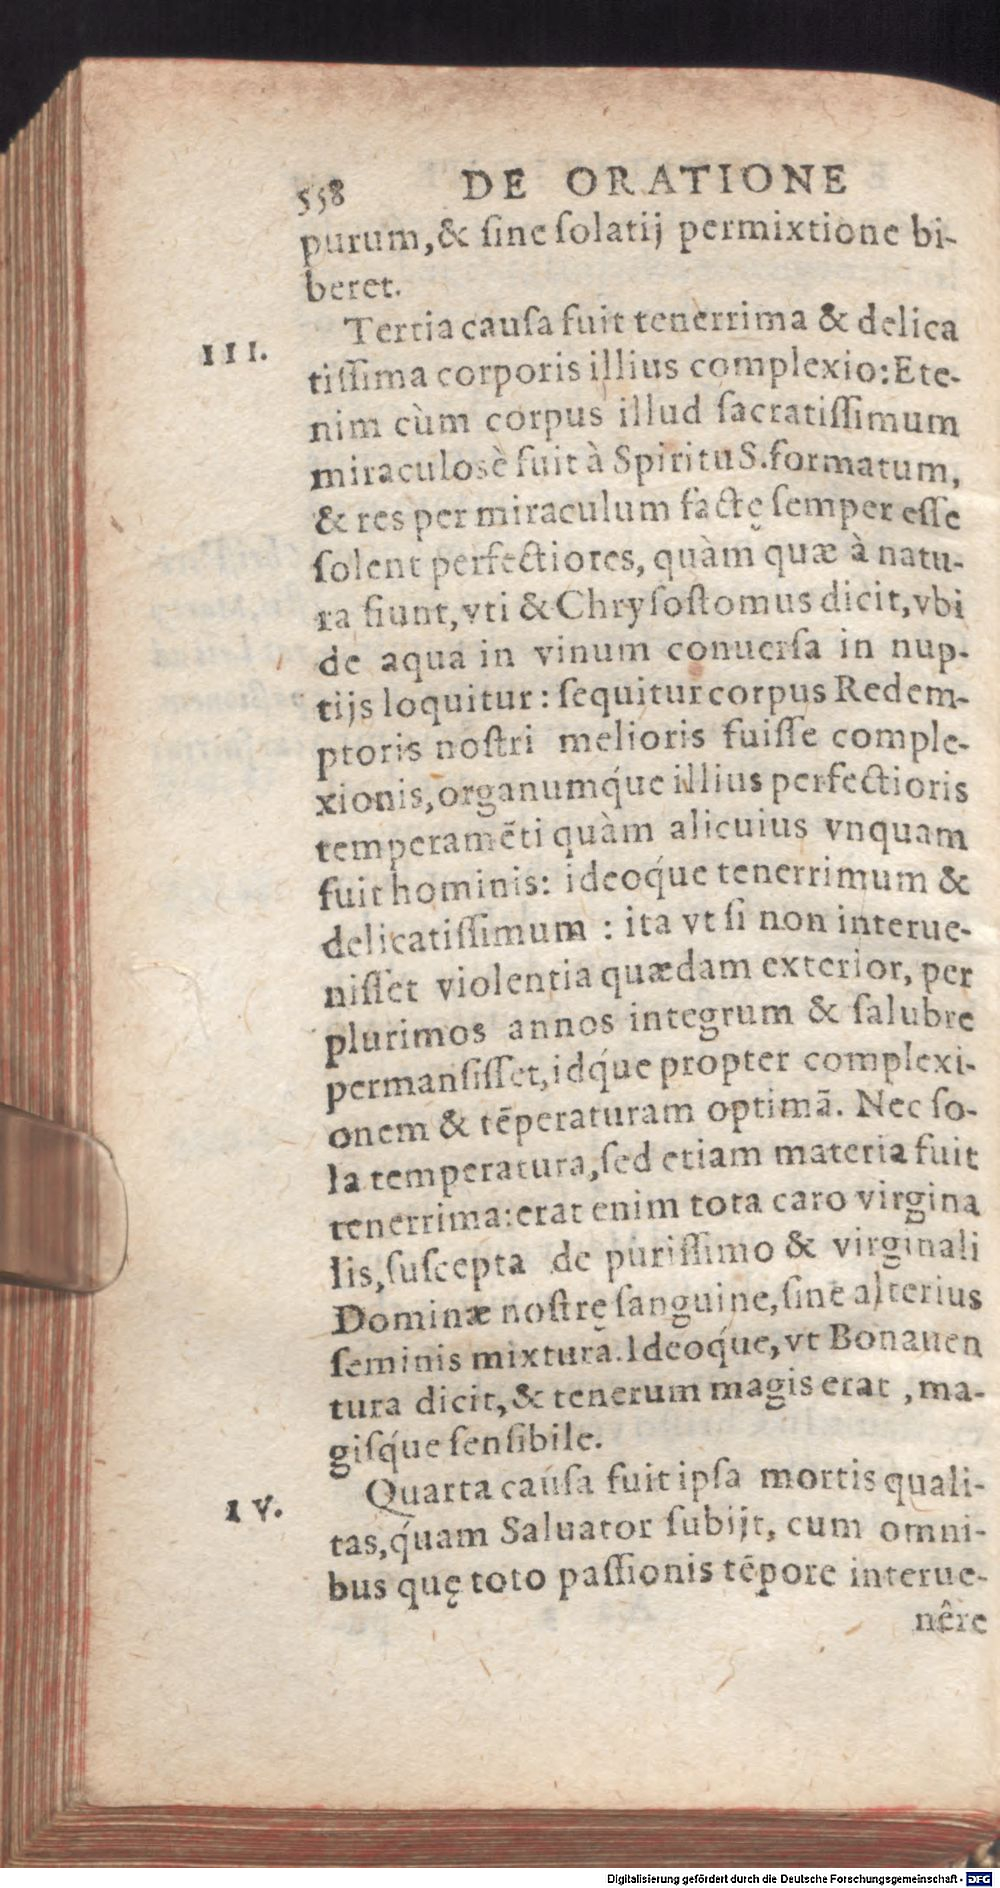 558 DE ORATIONE
purum, & ſine ſolatij permixtione bi-
beret.
III. Tertia cauſa fuit tenerrima & delica
tiſſima corporis illius complexio: Ete-
nim cùm corpus illud ſacratiſſimum
miraculosè fuit à Spiritu S. formatum,
& res per miraculum factę ſemper eſſe
ſolent perfectiores, quàm quæ à natu-
ra fiunt, vti & Chryſoſtomus dicit, vbi
de aqua in vinum conuerſa in nup-
tijs loquitur: ſequitur corpus Redem-
ptoris noſtri melioris fuiſſe comple-
xionis, organumq́ue illius perfectioris
temperamẽti quàm alicuius vnquam
fuit hominis: ideoq́ue tenerrimum &
delicatiſſimum : ita vt ſi non interue-
niſſet violentia quædam exterior, per
plurimos annos integrum & ſalubre
permanſiſſet, idq́ue propter complexi-
onem & tẽperaturam optimã. Nec ſo-
la temperatura, ſed etiam materia fuit
tenerrima: erat enim tota caro virgina
lis, ſuſcepta de puriſſimo & virginali
Dominæ noſtrę ſanguine, ſine alterius
ſeminis mixtura. Ideoq́ue, vt Bonauen
tura dicit, & tenerum magis erat, ma-
giſq́ue ſenſibile.
IV. Quarta cauſa fuit ipſa mortis quali-
tas, q́uam Saluator ſubijt, cum omni-
bus quę toto paſſionis tẽpore interue-
nêre
Digitalisierung gefördert durch die Deutsche Forschungsgemeinschaft - DFG